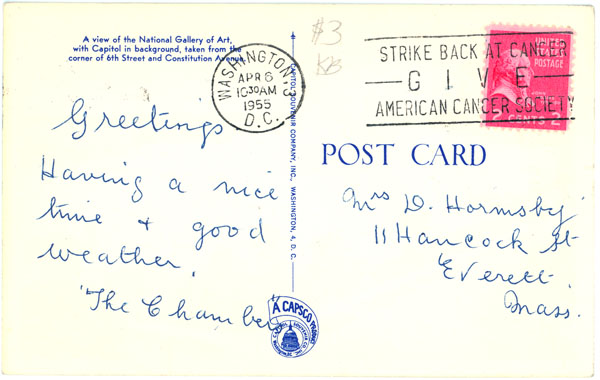 A view of the National Gallery of Art,
with Capitol in background, taken from the
corner of 6th Street and Constitution Avenue.
$3
KB
WASHINGTON 3
APR 6
10 30 AM
1955
D.C.
STRIKE BACK AT CANCER
GIVE
AMERICAN CANCER SOCIETY
UNITED STATES
POSTAGE
2 CENTS 2
Greetings
Having a nice
time & good
weather.
"The Chambers"
CAPITOL SOUVENIR COMPANY, INC., WASHINGTON, 4, D. C.
A CAPSCO
POST CARD
Mrs D. Hormsby
11 Hancock St
Everett
Mass.